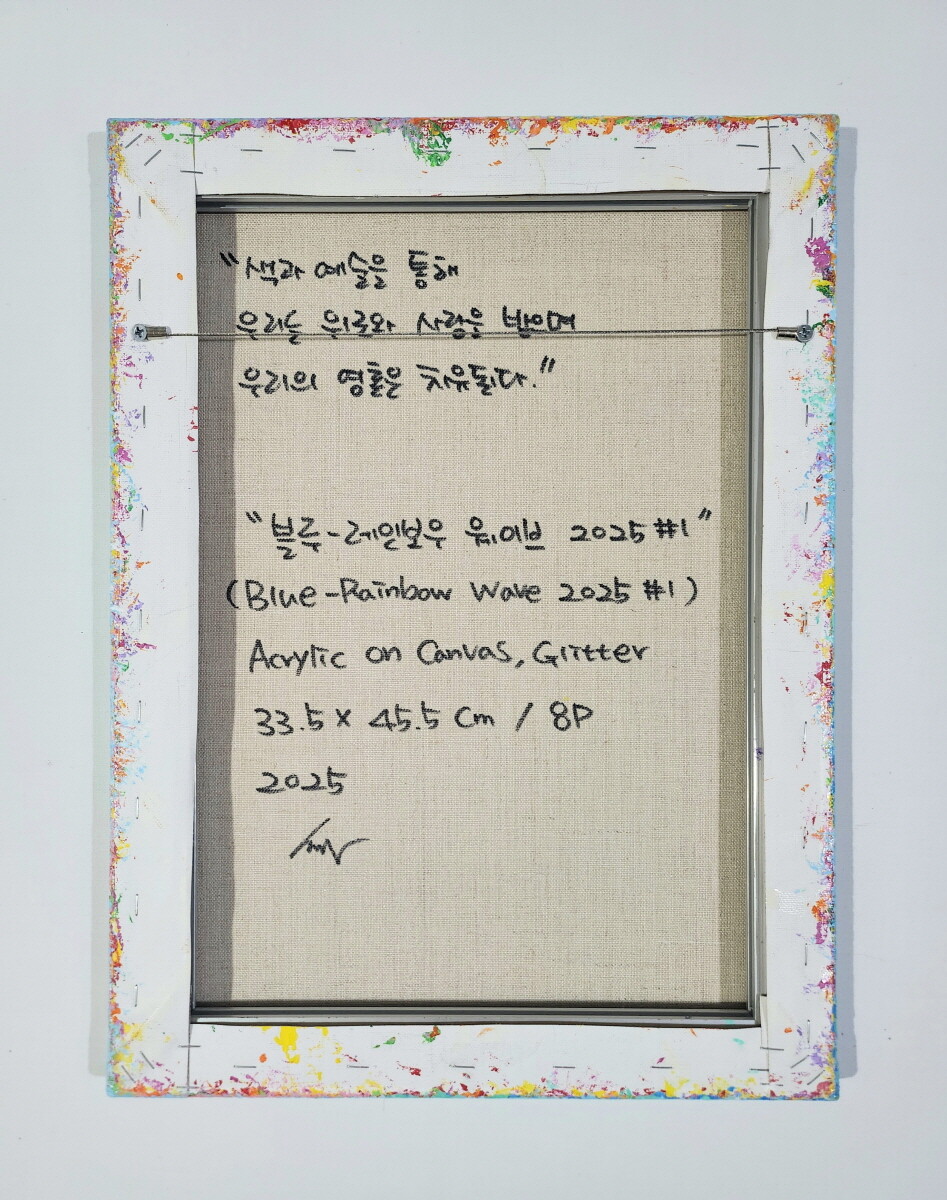 "색과 예술을 통해
우리는 위로와 사랑을 받으며
우리의 영혼은 치유된다."
"블루-레인보우 웨이브 2025 #1"
(Blue-Rainbow Wave 2025 #1)
Acrylic on Canvas, Glitter
33.5 x 45.5 cm / 8P
2025